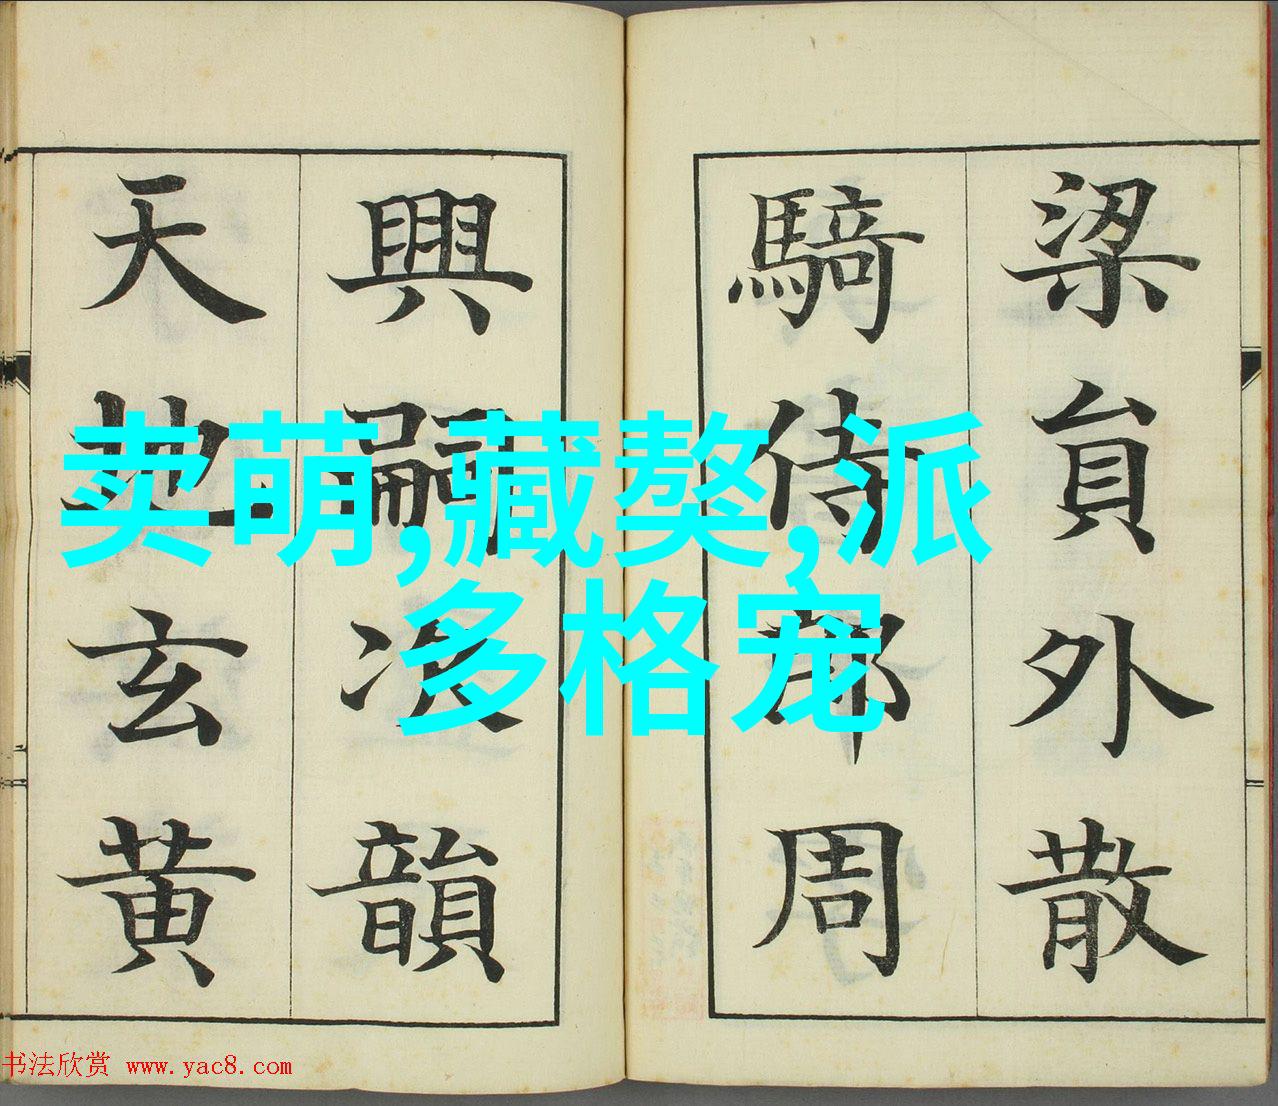 梁貟外散
騎侍郎周
興嗣次韻
天地玄黄
卖萌,藏獒,派
多格宠
书法欣赏 www.yac8.com